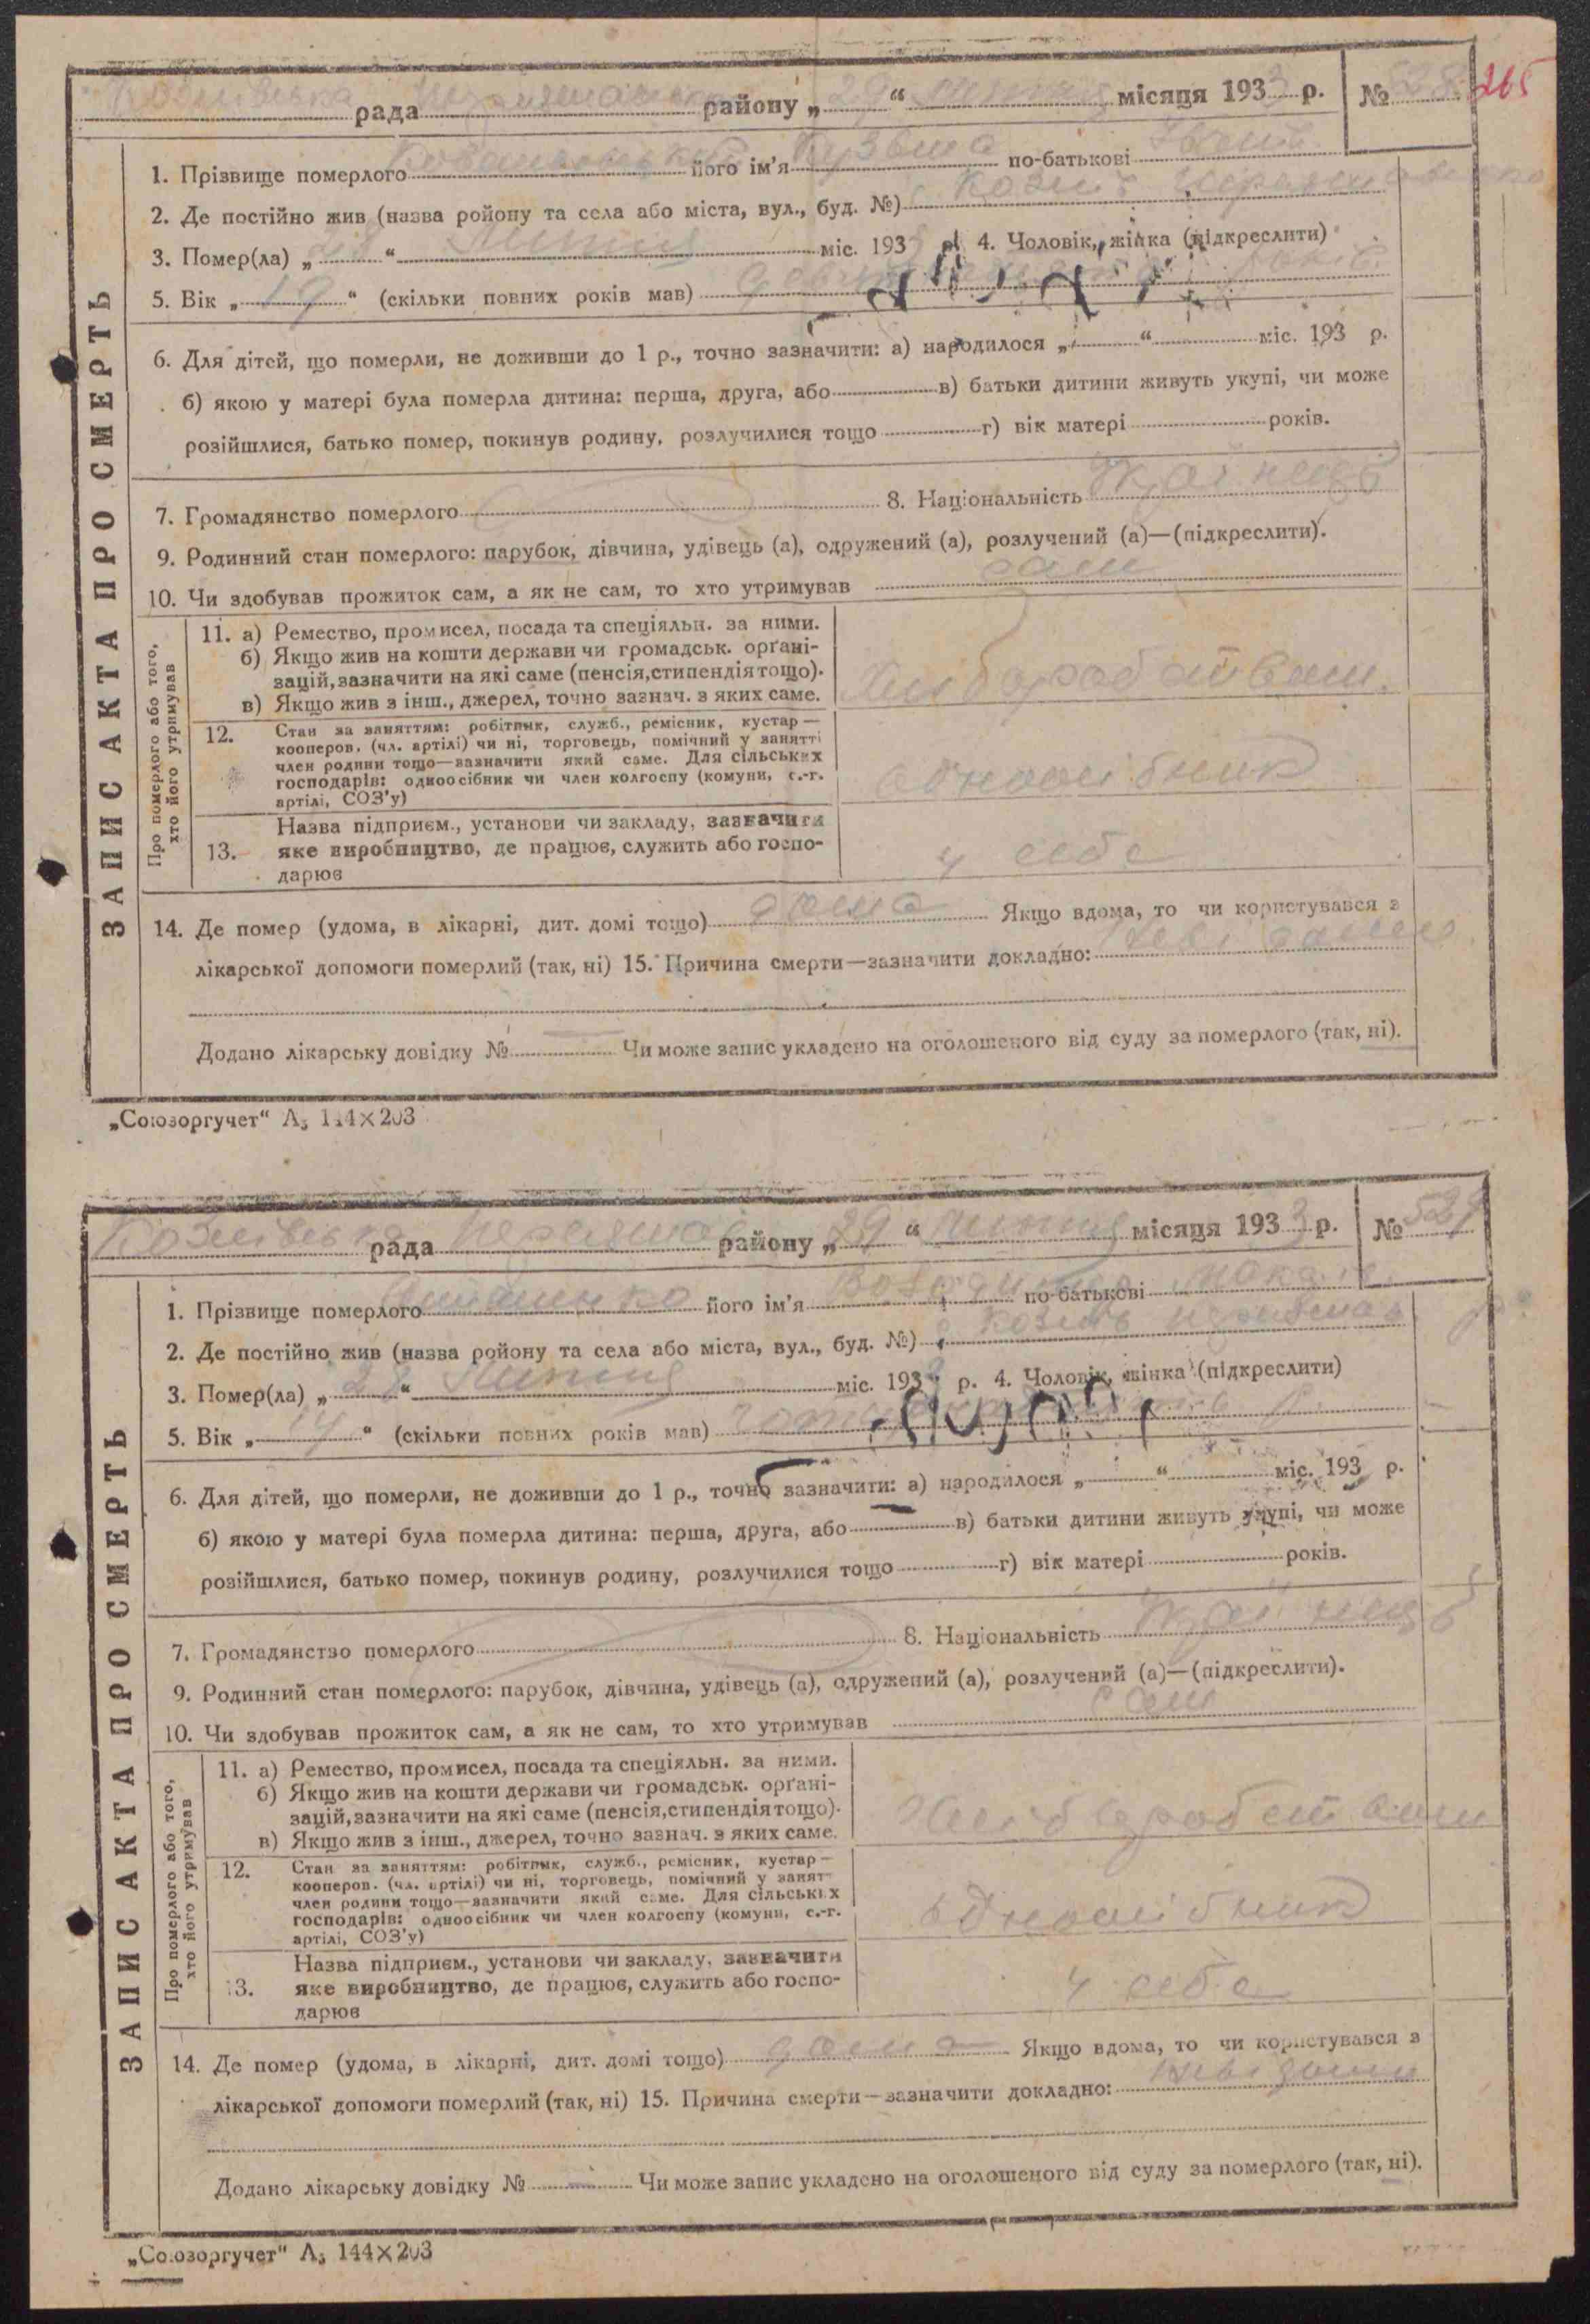 265
рада району „29“ липня місяця 1933 р. № 528
1. Прізвище померлого його ім'я Кузьма по-батькові
2. Де постійно жив (назва ройону та села або міста, вул., буд. №)
3. Помер(ла) „28“ Липня міс. 193 р. 4. Чоловік, жінка (підкреслити)
5. Вік „19“ (скільки повних років мав) років
6. Для дітей, що померли, не доживши до 1 р., точно зазначити: а) народилося „ “ міс. 193 р.
б) якою у матері була померла дитина: перша, друга, або в) батьки дитини живуть укупі, чи може
розійшлися, батько помер, покинув родину, розлучилися тощо г) вік матері років.
7. Громадянство померлого 8. Національність
9. Родинний стан померлого: парубок, дівчина, удівець (а), одружений (а), розлучений (а)—(підкреслити).
10. Чи здобував прожиток сам, а як не сам, то хто утримував сам
ЗАПИС АКТА ПРО СМЕРТЬ
Про померлого або того,
хто його утримував
11. а) Ремество, промисел, посада та спеціяльн. за ними.
б) Якщо жив на кошти держави чи громадськ. орґані-
зацій, зазначити на які саме (пенсія, стипендія тощо).
в) Якщо жив з інш., джерел, точно зазнач. з яких саме.
12. Стан за заняттям: робітник, служб., ремісник, кустар—
кооперов. (чл. артілі) чи ні, торговець, помічний у занятті
член родини тощо—зазначити який саме. Для сільських
господарів: одноосібник чи член колгоспу (комуни, с.-г.
артілі, СОЗ'у)
одноосібник
13. Назва підприєм., установи чи закладу, зазначити
яке виробництво, де працює, служить або госпо-
дарює
у себе
14. Де помер (удома, в лікарні, дит. домі тощо) дома Якщо вдома, то чи користувався з
лікарської допомоги померлий (так, ні) 15. Причина смерти—зазначити докладно:
Додано лікарську довідку № — Чи може запис укладено на оголошеного від суду за померлого (так, ні).
„Союзоргучет“ А₅ 144×203
Козинська рада району „29“ липня місяця 1933 р. № 529
1. Прізвище померлого його ім'я по-батькові
2. Де постійно жив (назва ройону та села або міста, вул., буд. №)
3. Помер(ла) „28“ Липня міс. 193 р. 4. Чоловік, жінка (підкреслити)
5. Вік „14“ (скільки повних років мав) р.
6. Для дітей, що померли, не доживши до 1 р., точно зазначити: а) народилося „ “ міс. 193 р.
б) якою у матері була померла дитина: перша, друга, або в) батьки дитини живуть укупі, чи може
розійшлися, батько помер, покинув родину, розлучилися тощо г) вік матері років.
7. Громадянство померлого 8. Національність
9. Родинний стан померлого: парубок, дівчина, удівець (а), одружений (а), розлучений (а)—(підкреслити).
10. Чи здобував прожиток сам, а як не сам, то хто утримував сам
ЗАПИС АКТА ПРО СМЕРТЬ
Про померлого або того,
хто його утримував
11. а) Ремество, промисел, посада та спеціяльн. за ними.
б) Якщо жив на кошти держави чи громадськ. орґані-
зацій, зазначити на які саме (пенсія, стипендія тощо).
в) Якщо жив з інш., джерел, точно зазнач. з яких саме.
12. Стан за заняттям: робітник, служб., ремісник, кустар—
кооперов. (чл. артілі) чи ні, торговець, помічний у занят
член родини тощо—зазначити який саме. Для сільських
господарів: одноосібник чи член колгоспу (комуни, с.-г.
артілі, СОЗ'у)
одноосібник
13. Назва підприєм., установи чи закладу, зазначити
яке виробництво, де працює, служить або госпо-
дарює
у себе
14. Де помер (удома, в лікарні, дит. домі тощо) дома Якщо вдома, то чи користувався з
лікарської допомоги померлий (так, ні) 15. Причина смерти—зазначити докладно:
Додано лікарську довідку № — Чи може запис укладено на оголошеного від суду за померлого (так, ні).
„Союзоргучет“ А₅ 144×203